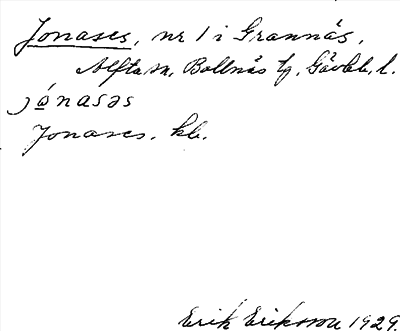 Jonases, nr 1 i Grannäs,
Alfta sn, Bollnäs tg, Gävleb. l.
jónasəs
Jonases. kb.
Erik Eriksson 1929.